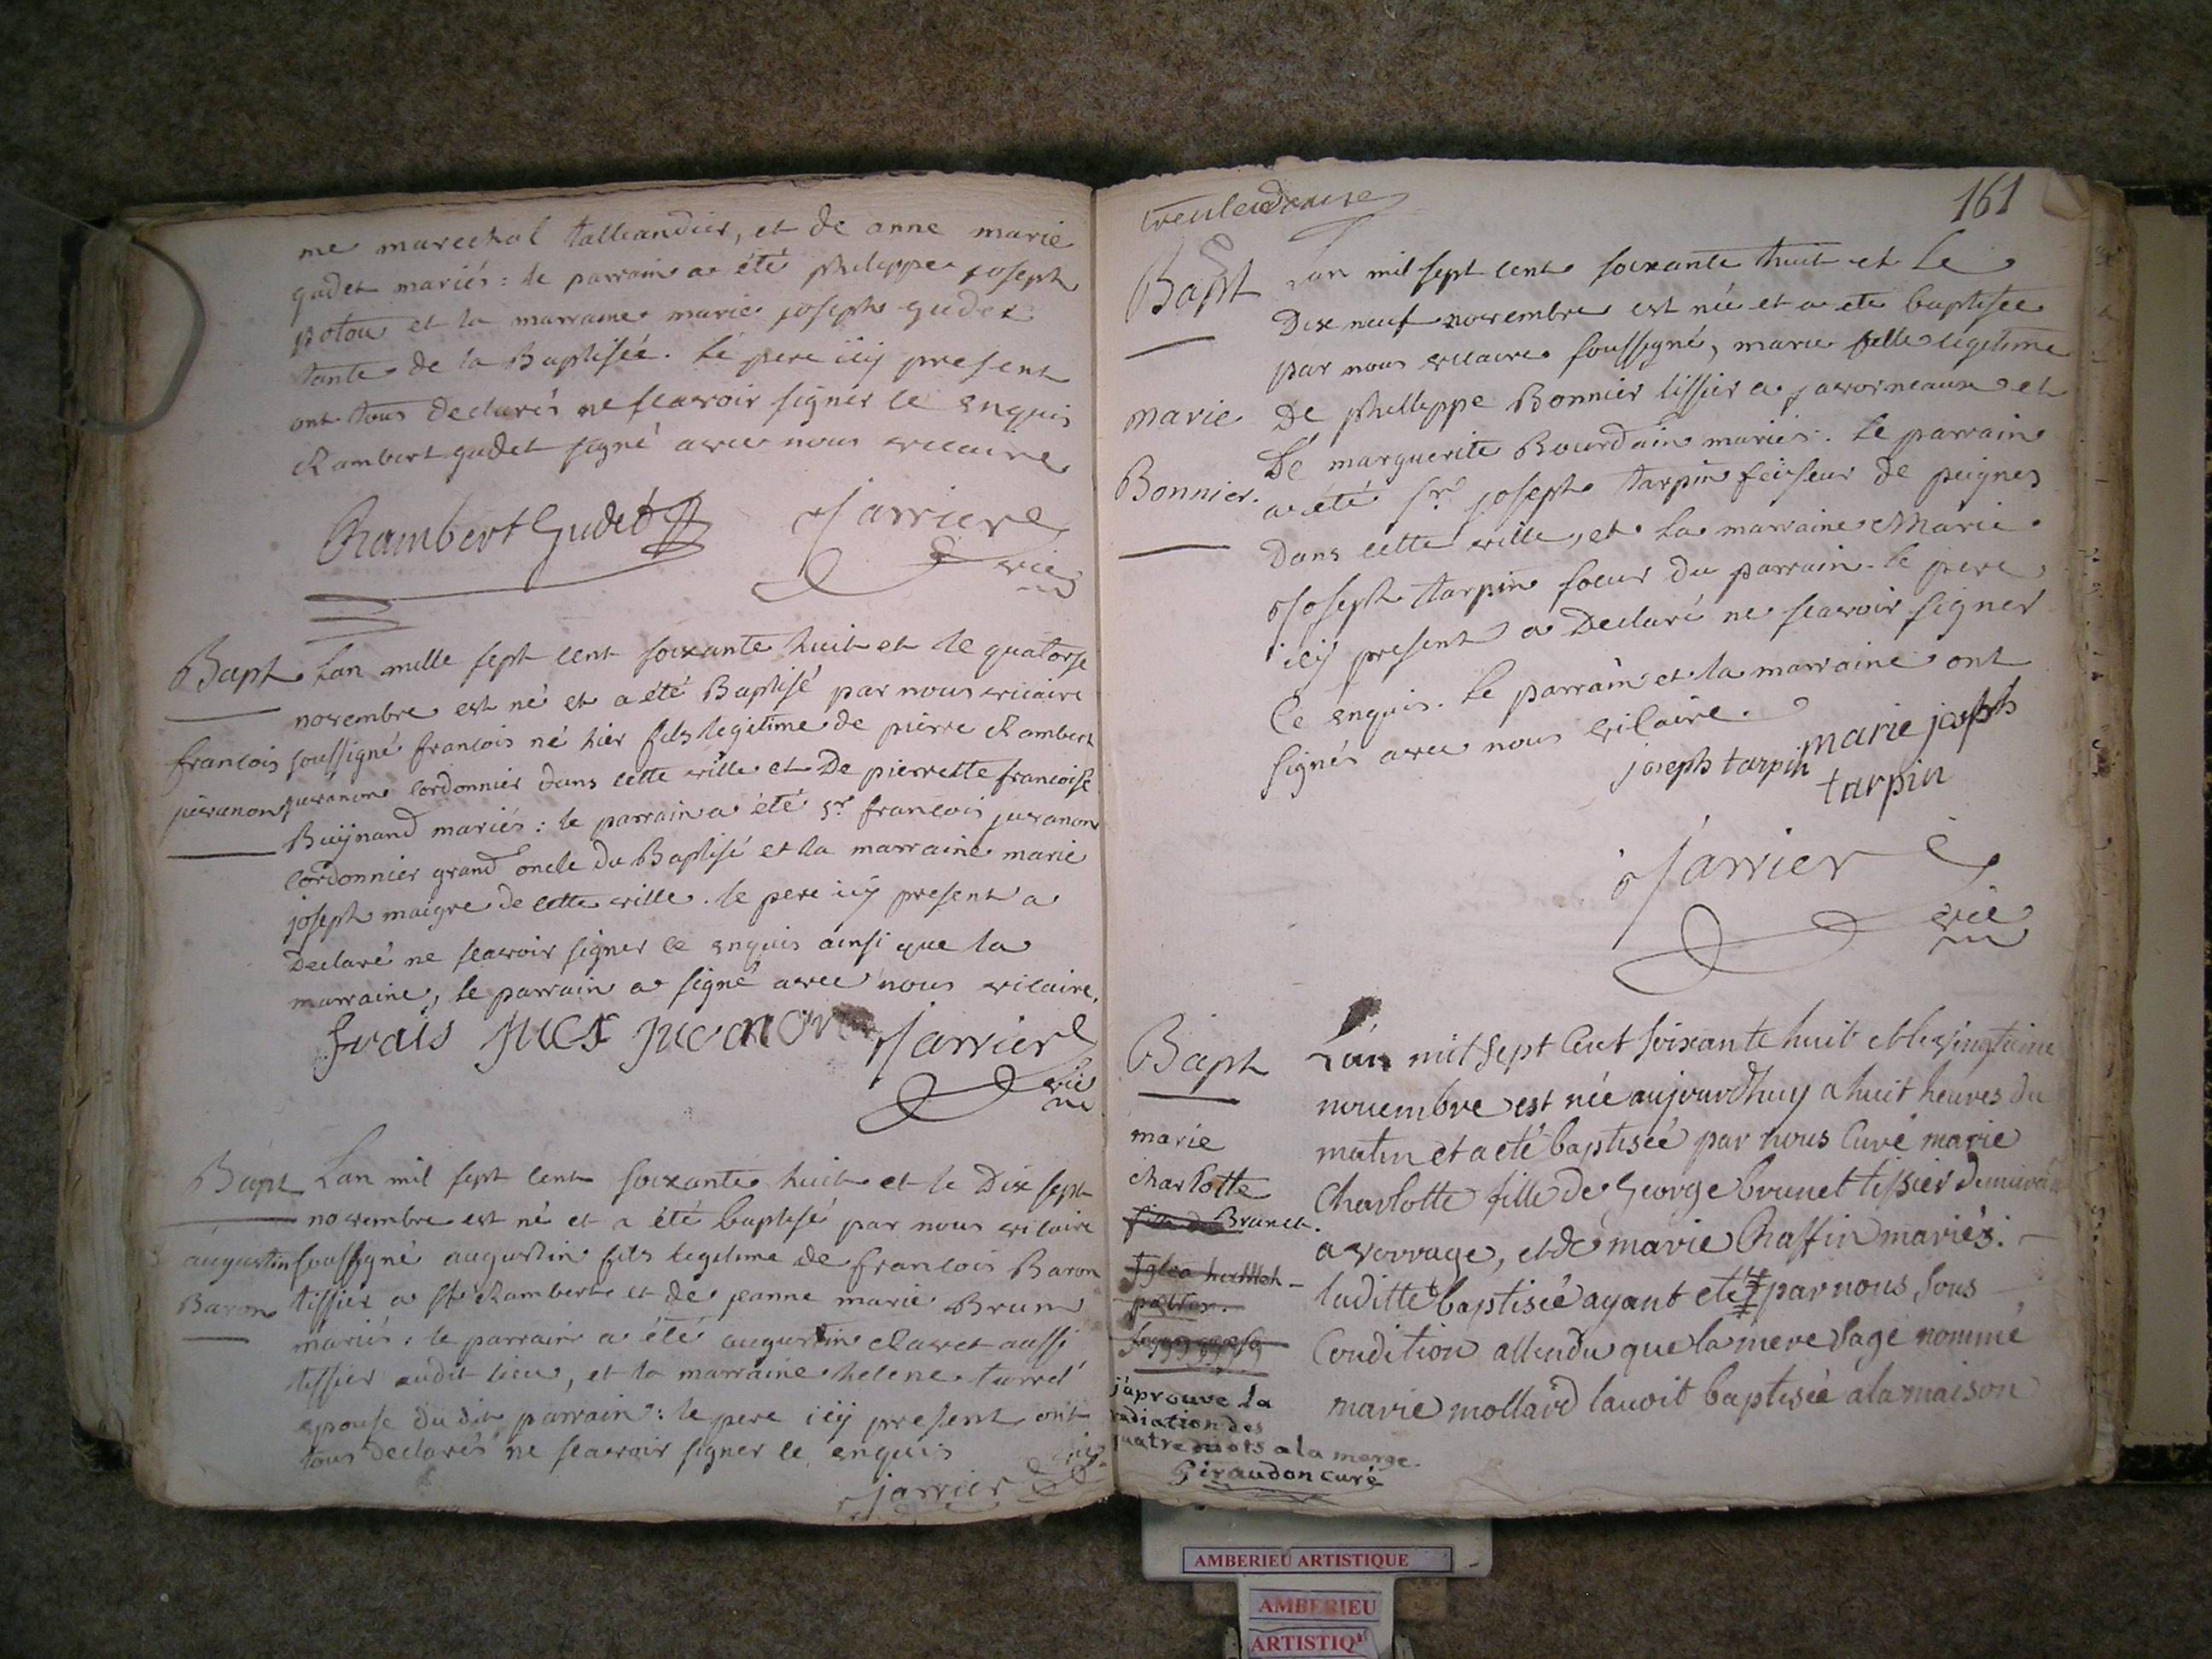 me marechal talliandier, et de anne marie
gudet mariés : le parrain a été philippe joseph
potou et la marraine marie joseph gudet
tante de la Baptisée. Le pere icy present
ont tous declarés ne scavoir signer ce enquis
Rambert gudet signé avec nous vicaire
Rambert Gudet Jarrier
vic
Bapt Lan mille sept cent soixante huit et le quatorse
novembre est né et a été Baptisé par nous vicaire
francois soussigné francois né hier fils legitime de pierre Rambert
juvanon juvanon cordonnier dans cette ville et De pierrette francoise
Buijnand mariés : le parrain a été sr francois juvanon
cordonnier grand oncle du Baptisé et la marraine marie
joseph maigre de cette ville. le pere icy present a
Declaré ne scavoir signer ce enquis ainsi que la
marraine, le parrain a signé avec nous vicaire.
frais juvanon Jarrier
vic
Bapt Lan mil sept cent soixante huit et le Dix sept
novembre est né et a été baptisé par nous vicaire
augustin soussigné augustin fils legitime de francois Baron
Baron tissier a st Rambert et de jeanne marie Brun
mariés : le parrain a été augustin Ravet aussi
tissier audit lieu, et la marraine helene turrel
epouse du dit parrain : le pere icy present ont
tous declarés ne scavoir signer ce enquis
Jarrier vic
161
Bapt Lan mil sept cent soixante huit et Le
Dix neuf novembre est née et a ete baptisée
par nous vicaire soussigné, marie fille legitime
marie De philippe Bonnier tissier a javorneaux et
De marguerite Bourdain mariés. Le parrain
Bonnier. a été sr joseph tarpin faiseur de peignes
Dans cette ville, et La marraine Marie
Joseph tarpin soeur du parrain. le pere
icy present a Declaré ne scavoir signer
Ce enquis. Le parrain et la marraine ont
signés avec nous vicaire.
joseph tarpin marie joseph
tarpin
Jarrier
vic
Bapt Lan mil sept Cent soixante huit et le vingtieme
novembre est née aujourdhuy a huit heures du
marie matin et a eté baptisée par nous Curé marie
charlotte Charlotte fille de George brunet tissier demurant
Brunet. a vorrage, et de marie Chaffin mariés.
laditte baptisée ayant eté par nous sous
Condition attendu que la mere sage nommé
marie mollard lavoit baptisée a la maison
j'aprouve la
radiation des
quatre mots a la marge.
Giraudon curé
AMBERIEU ARTISTIQUE
AMBERIEU
ARTISTIQ